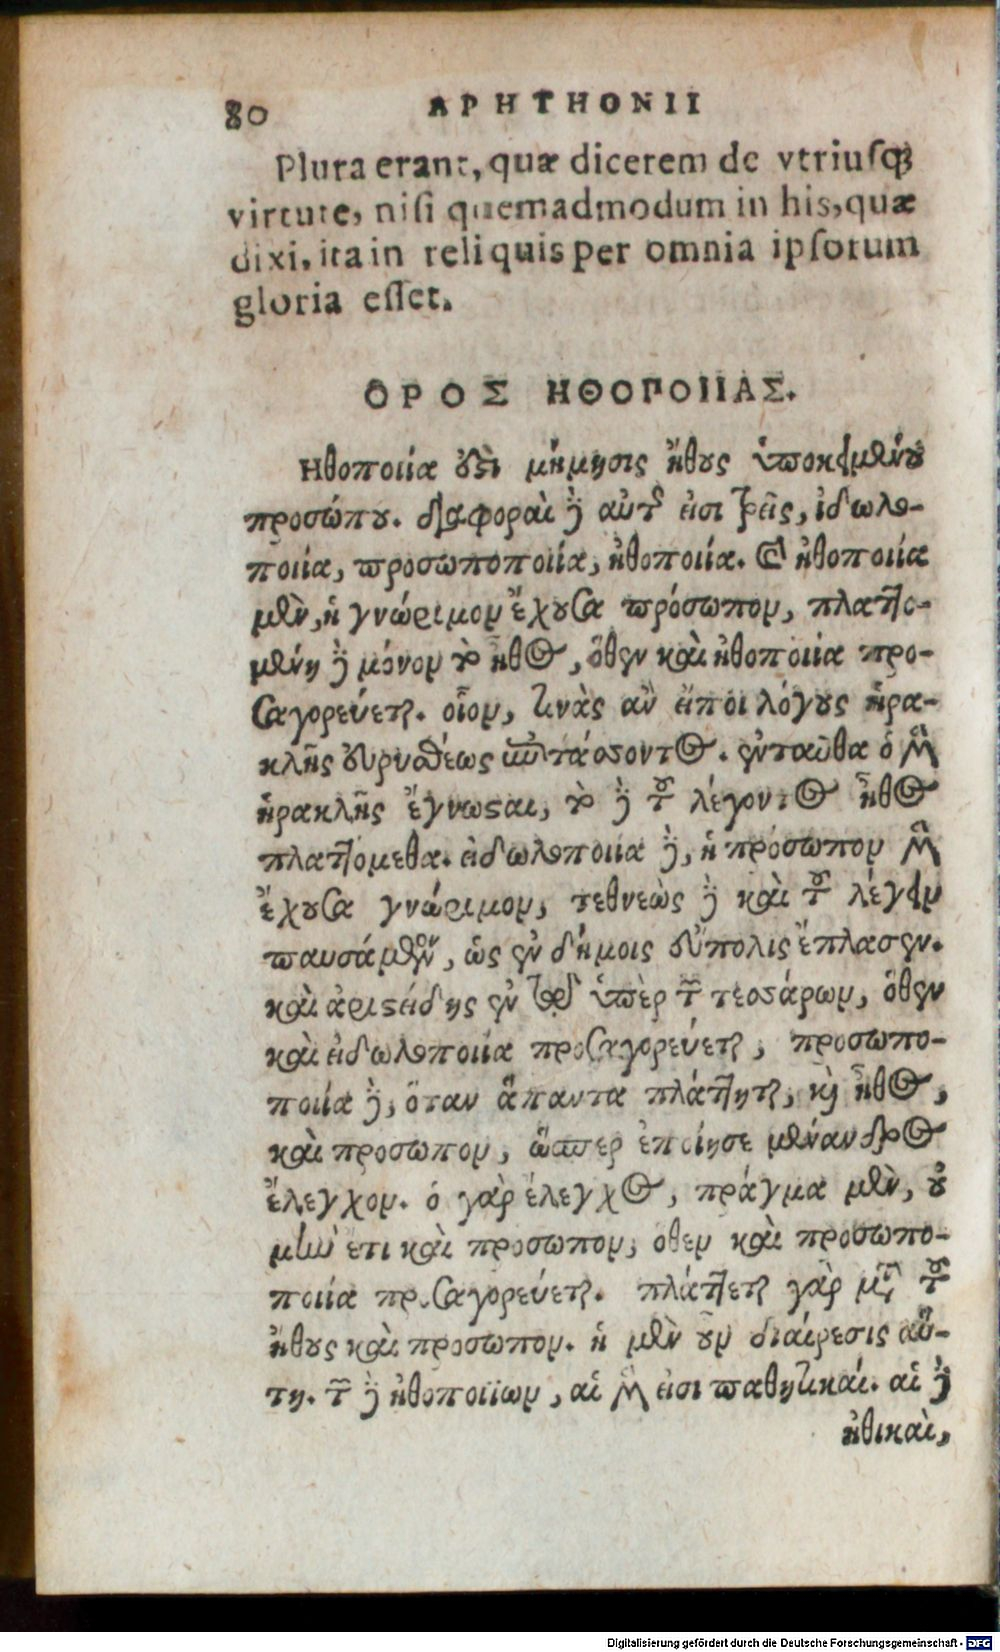 80 ΑΡΗΤΗΟΝΙΙ
Plura erant, quæ dicerem de vtriusq;
virtute, nisi quemadmodum in his, quæ
dixi, ita in reliquis per omnia ipsorum
gloria esset.
ΟΡΟΣ ΗΘΟΠΟΙΙΑΣ.
Ηθοποιία ὅστὶ μίμησις ἤθους ὑποκειμένου
προσώπου. διαφοραὶ δὲ αὐτῆς εἰσι τρεῖς, ἰδωλο-
ποιία, προσωποποιία, ἠθοποιία. Καὶ ἠθοποιία
μὲν, ἡ γνώριμον ἔχουσα πρόσωπον, πλαττο-
μένη δὲ μόνον τὸ ἦθος, ὅθεν καὶ ἠθοποιία προ-
σαγορεύεται. οἷον, τινὰς ἂν εἴποι λόγους ἡρα-
κλῆς εὐρυσθέως ἐπιτάσσοντος. ἐνταῦθα ὁ μὲν
ἡρακλῆς ἔγνωσαι, τὸ δὲ τοῦ λέγοντος ἦθος
πλαττόμεθα. εἰδωλοποιία δὲ, ἡ πρόσωπον μὲν
ἔχουσα γνώριμον, τεθνεὼς δὲ καὶ τοῦ λέγειν
παυσάμενον, ὡς ἐν δήμοις εὔπολις ἔπλασεν.
καὶ ἀριστείδης ἐν τῷ ὑπὲρ τῶν τεσσάρων, ὅθεν
καὶ εἰδωλοποιία προσαγορεύεται, προσωπο-
ποιία δὲ, ὅταν ἅπαντα πλάττηται, καὶ ἦθος,
καὶ προσωπον, ὥσπερ ἐποίησε μένανδρος
ἔλεγχον. ὁ γὰρ ἔλεγχος, πράγμα μὲν, οὐ
μὴν ἔτι καὶ προσωπον, οθεν καὶ προσωπο-
ποιία προσαγορεύεται. πλάττεται γὰρ μετὰ τοῦ
ἤθους καὶ προσωπον. ἡ μὲν οὖν διαίρεσις αὕ-
τη. τῶν δὲ ἠθοποιϊων, αἱ μὲν εἰσι παθητικαί. αἱ δὲ
ἠθικαὶ,
Digitalisierung gefördert durch die Deutsche Forschungsgemeinschaft - DFG